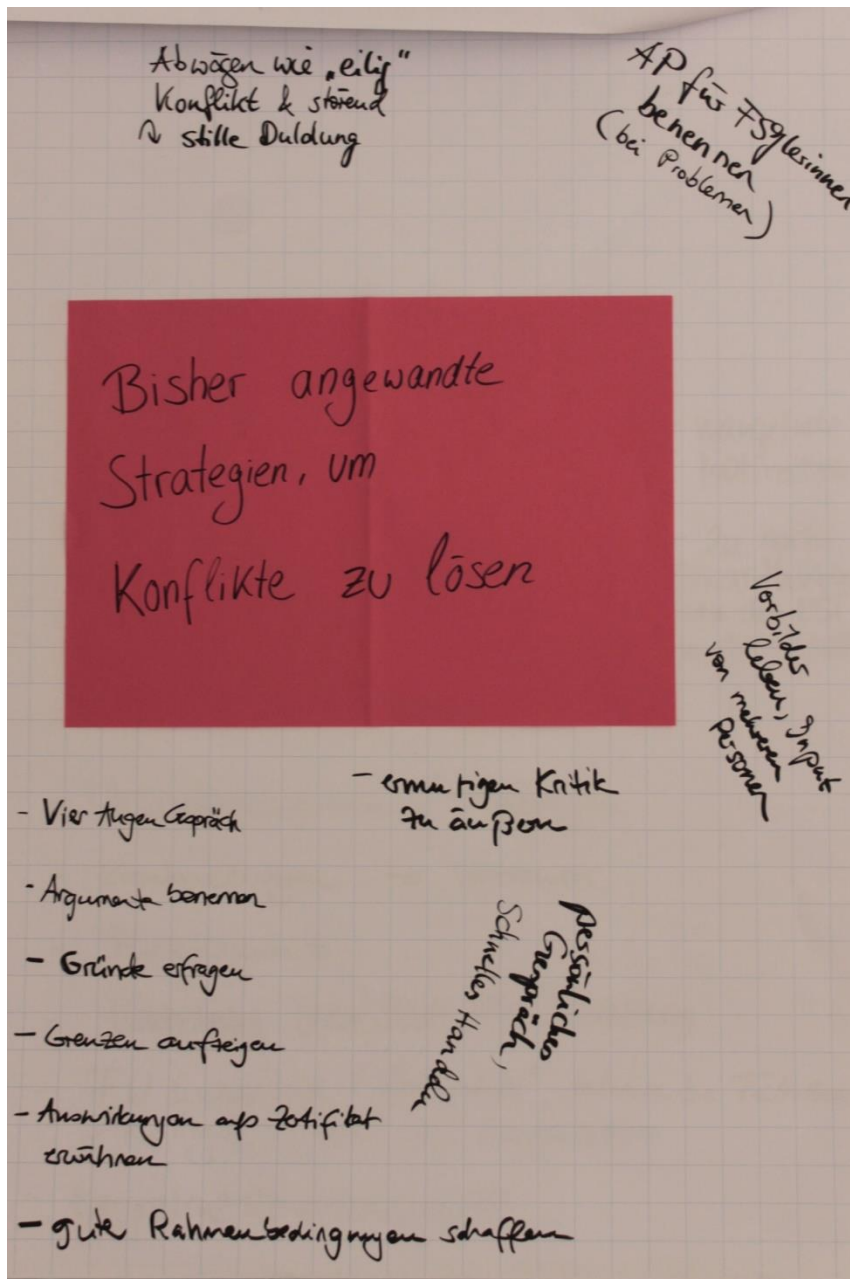 Abwägen wie „eilig"
Konflikt & störend
↷ stille Duldung
AP für FSJlerinnen
benennen
(bei Problemen)
Bisher angewandte
Strategien, um
Konflikte zu lösen
Vorbilder
leben, Input
von mehreren
Personen
- ermutigen Kritik
zu äußern
- Vier Augen Gespräch
- Argumente benennen
- Gründe erfragen
- Grenzen aufzeigen
- Auswirkungen aufs Zertifikat
erwähnen
- gute Rahmenbedingungen schaffen
persönliches
Gespräch,
Schnelles Handeln